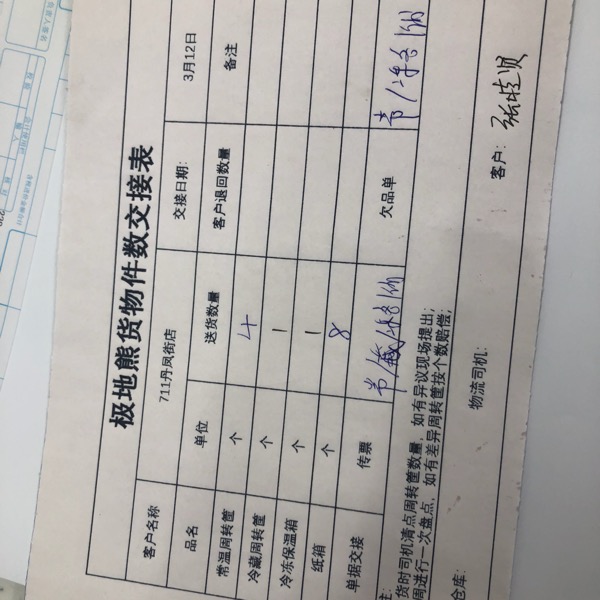 极地熊货物件数交接表
客户名称 711丹凤街店 交接日期: 3月12日
品名 单位 送货数量 客户退回数量 备注
常温周转筐 个 4
冷藏周转筐 个 1
冷冻保温箱 个 1
纸箱 个 8
单据交接 传票 欠品单
货时司机清点周转筐数量，如有异议现场提出；
周进行一次盘点，如有差异周转筐按个数赔偿；
仓库: 物流司机: 客户: